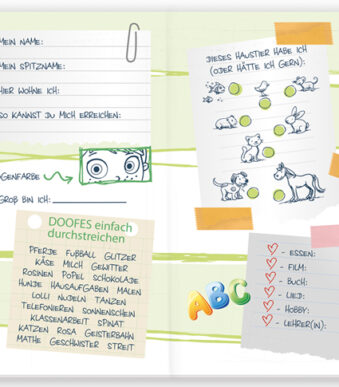 MEIN NAME:
MEIN SPITZNAME:
HIER WOHNE ICH:
SO KANNST DU MICH ERREICHEN:
GENFARBE
GROß BIN ICH:
DOOFES einfach
durchstreichen
PFERDE FUßBALL GLITZER
KÄSE MILCH GEWITTER
ROSINEN POPEL SCHOKOLADE
HUNDE HAUSAUFGABEN MALEN
LOLLI NUDELN TANZEN
TELEFONIEREN SONNENSCHEIN
KLASSENARBEIT SPINAT
KATZEN ROSA GEISTERBAHN
MATHE GESCHWISTER STREIT
DIESES HAUSTIER HABE ICH
(ODER HÄTTE ICH GERN):
ABC
- ESSEN:
- FILM:
- BUCH:
- LIED:
- HOBBY:
- LEHRER(IN):